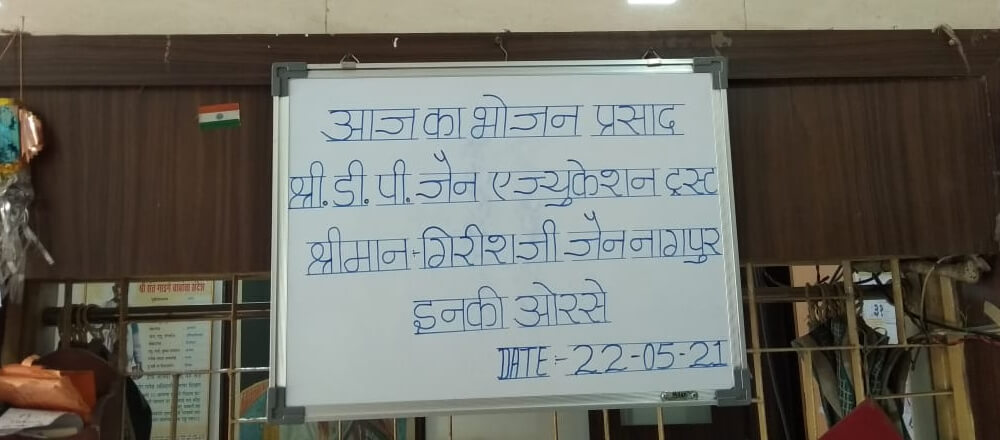 आज का भोजन प्रसाद
श्री.डी.पी.जैन एज्युकेशन ट्रस्ट
श्रीमान:-गिरीशजी जैन नागपुर
इनकी ओरसे
DATE:- 22-05-21
श्री संत गाडगे बाबांचा संदेश
३१